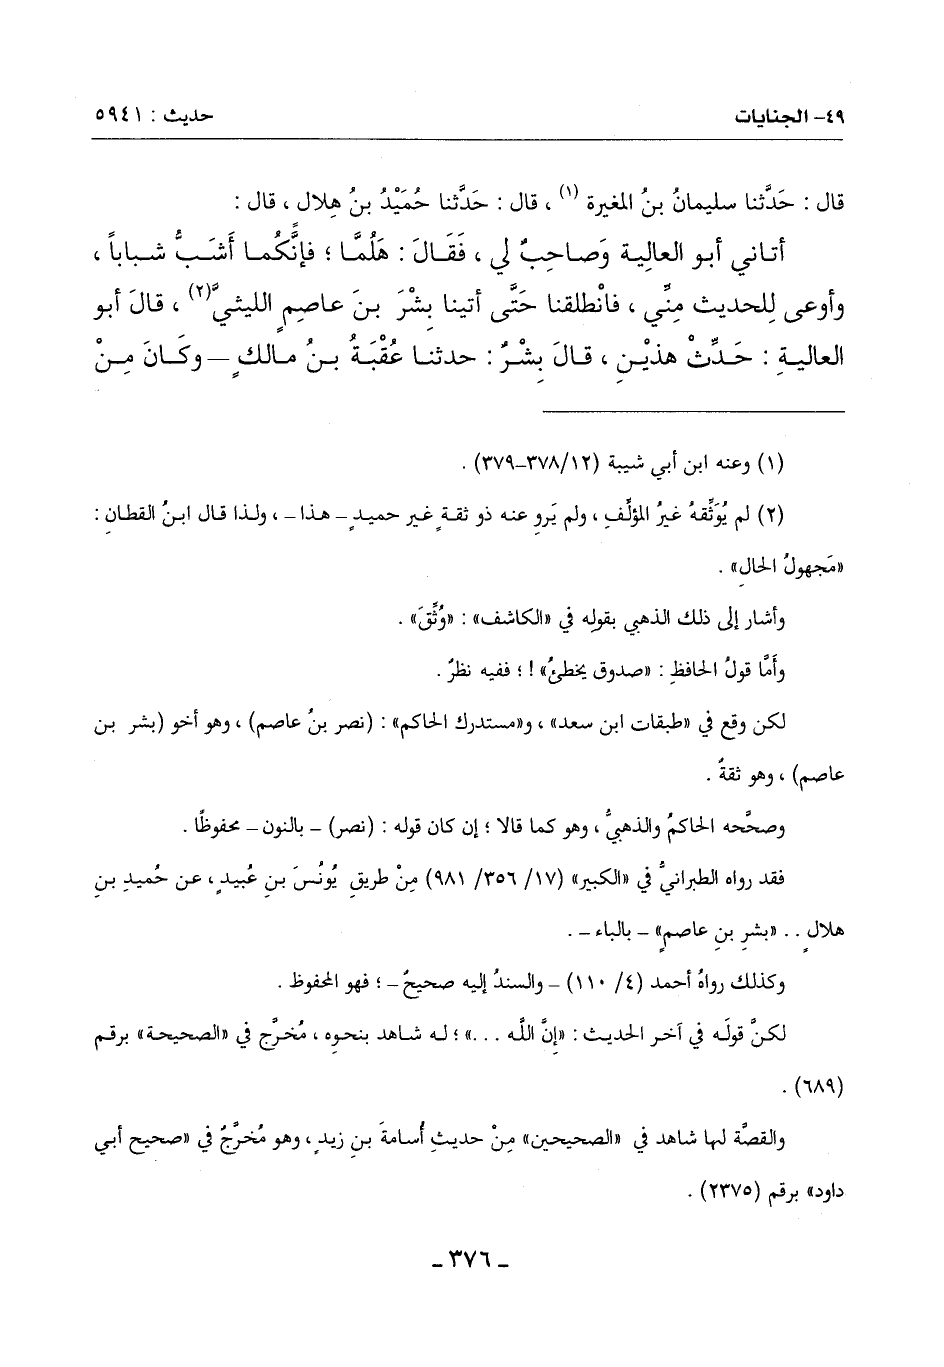 ٤٩- الجنايات حديث : ٥٩٤١
قال : حَدَّثنا سليمانُ بنُ المغيرة (١) ، قال : حَدَّثنا حُمَيْدُ بنُ هِلال ، قال :
أتاني أبو العالِية وَصاحِبٌ لي ، فَقَالَ : هَلُمَّا ؛ فإنَّكُما أَشَبُّ شباباً ،
وأوعى لِلحديث مِنِّي ، فانْطلقنا حَتَّى أتينا بِشْرَ بنَ عاصِمٍ الليثيَّ (٢) ، قالَ أبو
العالية : حَدِّثْ هذيْنِ ، قالَ بِشْرٌ : حدثنا عُقْبَةُ بنُ مالكٍ – وكَانَ مِنْ
(١) وعنه ابن أبي شيبة (١٢/ ٣٧٨-٣٧٩) .
(٢) لم يُوَثِّقهُ غيرُ المؤلِّفِ ، ولم يَروِ عنه ذو ثقةٍ غير حميدٍ – هذا – ، ولذا قال ابنُ القطانِ :
«مَجهولُ الحالِ» .
وأشار إلى ذلك الذهبي بقولِه في «الكاشف» : «وُثِّقَ» .
وأَمَّا قولُ الحافظِ : «صدوق يخطئُ» ! ؛ ففيه نظرٌ .
لكن وقع في «طبقات ابن سعد» ، و«مستدرك الحاكم» : (نصر بنُ عاصم) ، وهو أخو (بشر بن
عاصم) ، وهو ثقةٌ .
وصحَّحه الحاكمُ والذهبيُّ ، وهو كما قالا ؛ إن كان قوله : (نصر) – بالنون – محفوظًا .
فقد رواه الطبرانيُّ في «الكبير» (١٧/ ٣٥٦/ ٩٨١) مِنْ طريقِ يُونُسَ بنِ عُبيدٍ ، عن حُميدِ بنِ
هلالٍ . . «بشرِ بنِ عاصمٍ» – بالباء – .
وكذلك رواهُ أحمد (٤/ ١١٠) – والسندُ إليه صحيحٌ – ؛ فهو المحفوظ .
لكنَّ قولَه في آخر الحديث : «إنَّ اللَّه . . .» ؛ له شاهد بنحوِه ، مُخرَّج في «الصحيحة» برقم
(٦٨٩) .
والقصَّة لها شاهد في «الصحيحين» مِنْ حديثِ أسامةَ بنِ زيدٍ ، وهو مُخرَّجٌ في «صحيح أبي
داود» برقم (٢٣٧٥) .
- ٣٧٦ -